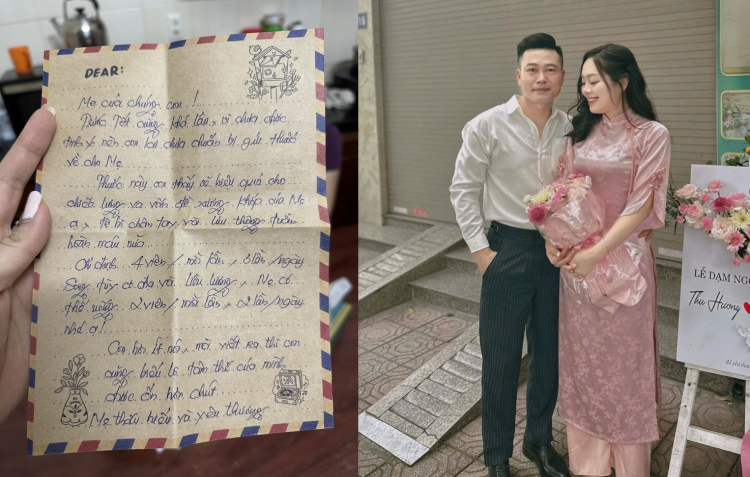 DEAR:
Mẹ của chúng con!
Trước Tết cũng khá lâu, vì chưa được
nên con chưa chuẩn bị gửi thuốc
về cho Mẹ.
Thuốc này con thấy sẽ hiệu quả cho
chiếc lưng và vấn đề xương khớp của Mẹ
ạ, tê bì chân tay và lưu thông tuần
hoàn máu nữa.
Chỉ định 4 viên/mỗi lần, 3 lần/ngày
Song tùy cơ địa và liều lượng, Mẹ có
thể uống 2 viên/mỗi lần, 2 lần/ngày
nhé ạ!
Con hơi ít nói, mà viết ra thì con
cũng biểu lộ tâm thư của mình
được ổn hơn chút.
Mẹ thấu hiểu và yêu thương
LỄ DẠM NGÕ
Thu Hương